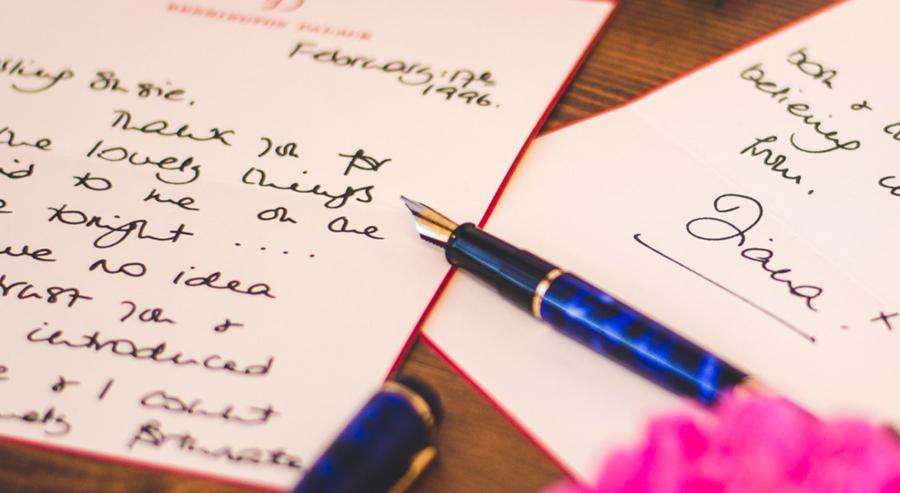 KENSINGTON PALACE
February, 17th
1996.
Susie.
Thank you for
lovely things
to me on the
tonight ....
no idea
trust you &
introduced
& I count
fortunate
you &
believing
from,
Diana. x